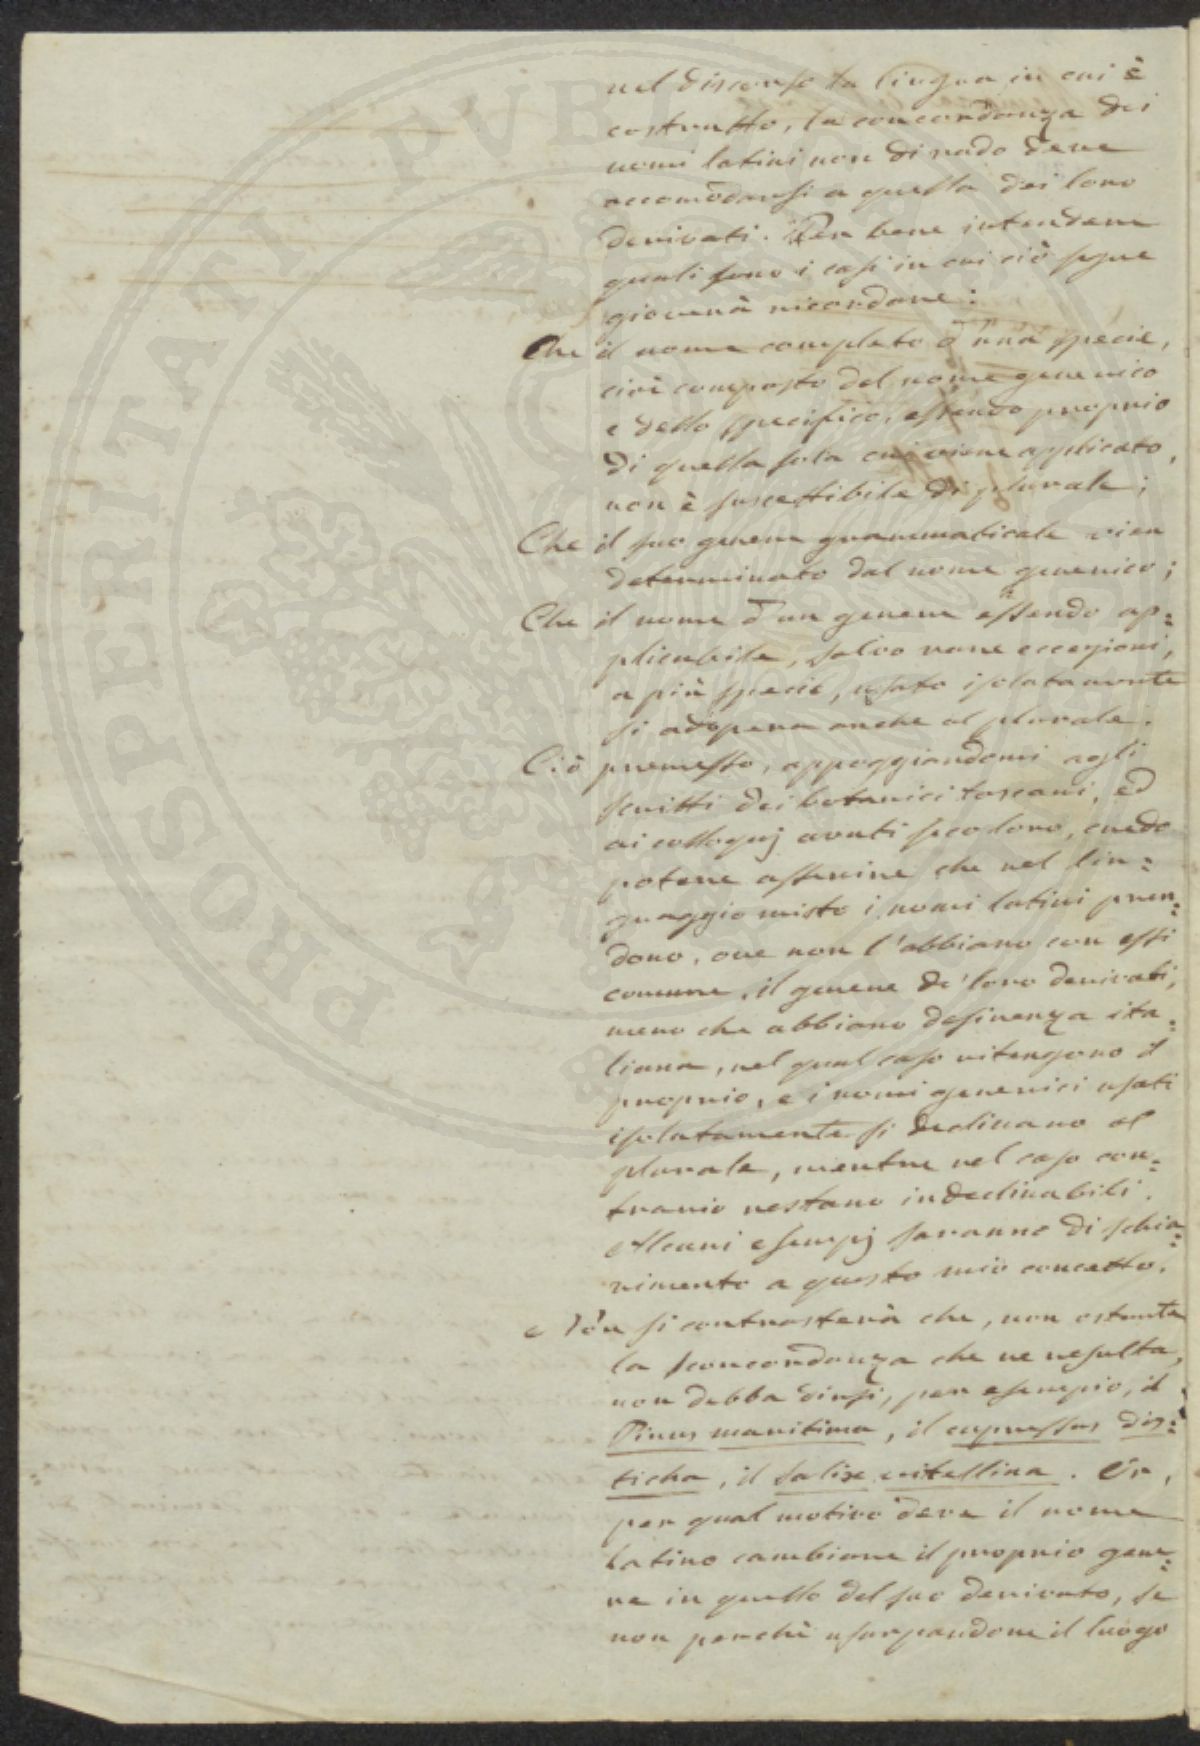 nel discorso la lingua in cui è
costrutto, la concordanza dei
nomi latini non di rado deve
accomodarsi a quella dei loro
derivati. Per bene intendere
quali sono i casi in cui ciò segue
gioverà ricordare:
Che il nome completo d'una specie,
cioè composto del nome generico
e dello specifico, essendo proprio
di quella sola cui viene applicato,
non è suscettibile di plurale;
Che il suo genere grammaticale vien
determinato dal nome generico;
Che il nome d'un genere essendo ap=
plicabile, salvo rare eccezioni,
a più specie, usato isolatamente
si adopera anche al plurale.
Ciò premesso, appoggiandomi agli
scritti dei botanici toscani, ed
ai colloquj avuti seco loro, credo
potere asserire che nel lin=
guaggio misto i nomi latini pren=
dono, ove non l'abbiano con essi
comune, il genere de' loro derivati,
meno che abbiano desinenza ita=
liana, nel qual caso ritengono il
proprio, e i nomi generici usati
isolatamente si declinano al
plurale, mentre nel caso con=
trario restano indeclinabili.
Alcuni esempj saranno di schia=
rimento a questo mio concetto.
Non si contrasterà che, non ostante
la sconcordanza che ne resulta,
non debba dirsi, per esempio, il
Pinus maritima, il cupressus dis=
ticha, il salix vitellina. Or,
per qual motivo deve il nome
latino cambiare il proprio gene=
re in quello del suo derivato, se
non perchè usurpandone il luogo
PROSPERITATI PUBL